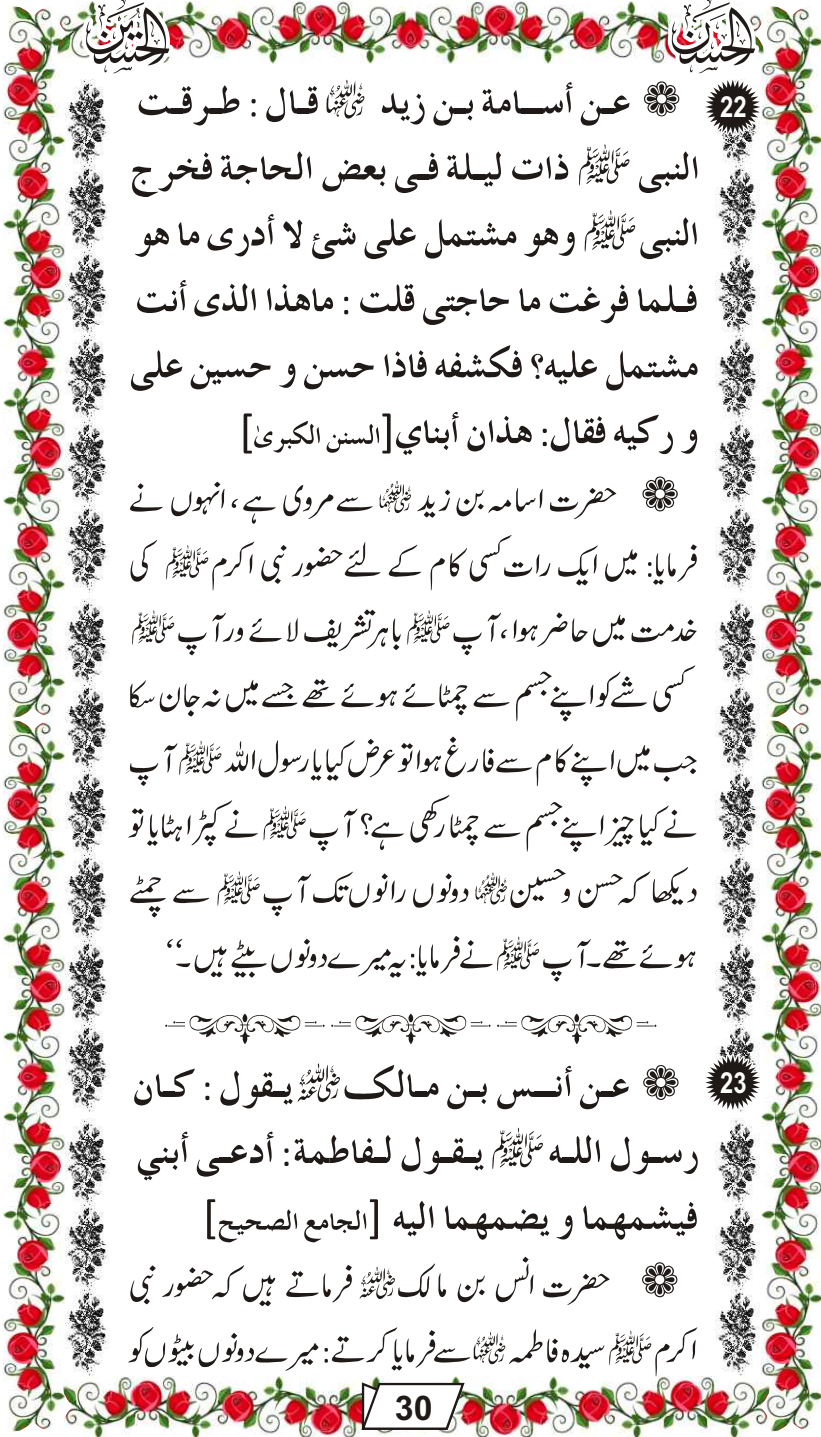 الحسنین الحسنین
22 ❁ عن أسامة بن زيد رضی اللہ عنہما قال : طرقت
النبی ﷺ ذات ليلة فی بعض الحاجة فخرج
النبی ﷺ وهو مشتمل علی شئ لا أدری ما هو
فلما فرغت ما حاجتی قلت : ماهذا الذی أنت
مشتمل عليه؟ فكشفه فاذا حسن و حسين علی
و ركيه فقال: هذان أبناي [السنن الكبریٰ]
❁ حضرت اسامہ بن زید رضی اللہ عنہما سے مروی ہے ، انہوں نے
فرمایا: میں ایک رات کسی کام کے لئے حضور نبی اکرم ﷺ کی
خدمت میں حاضر ہوا ، آپ ﷺ باہر تشریف لائے ور آپ ﷺ
کسی شے کو اپنے جسم سے چمٹائے ہوئے تھے جسے میں نہ جان سکا
جب میں اپنے کام سے فارغ ہوا تو عرض کیا یا رسول اللہ ﷺ آپ
نے کیا چیز اپنے جسم سے چمٹا رکھی ہے؟ آپ ﷺ نے کپڑا ہٹایا تو
دیکھا کہ حسن وحسین رضی اللہ عنہما دونوں رانوں تک آپ ﷺ سے چمٹے
ہوئے تھے۔ آپ ﷺ نے فرمایا: یہ میرے دونوں بیٹے ہیں۔‘‘
23 ❁ عن أنس بن مالک رضی اللہ عنہ يقول : كان
رسول اللہ ﷺ يقول لفاطمة: أدعی أبني
فيشمهما و يضمهما اليه [الجامع الصحيح]
❁ حضرت انس بن مالک رضی اللہ عنہ فرماتے ہیں کہ حضور نبی
اکرم ﷺ سیدہ فاطمہ رضی اللہ عنہا سے فرمایا کرتے: میرے دونوں بیٹوں کو
30